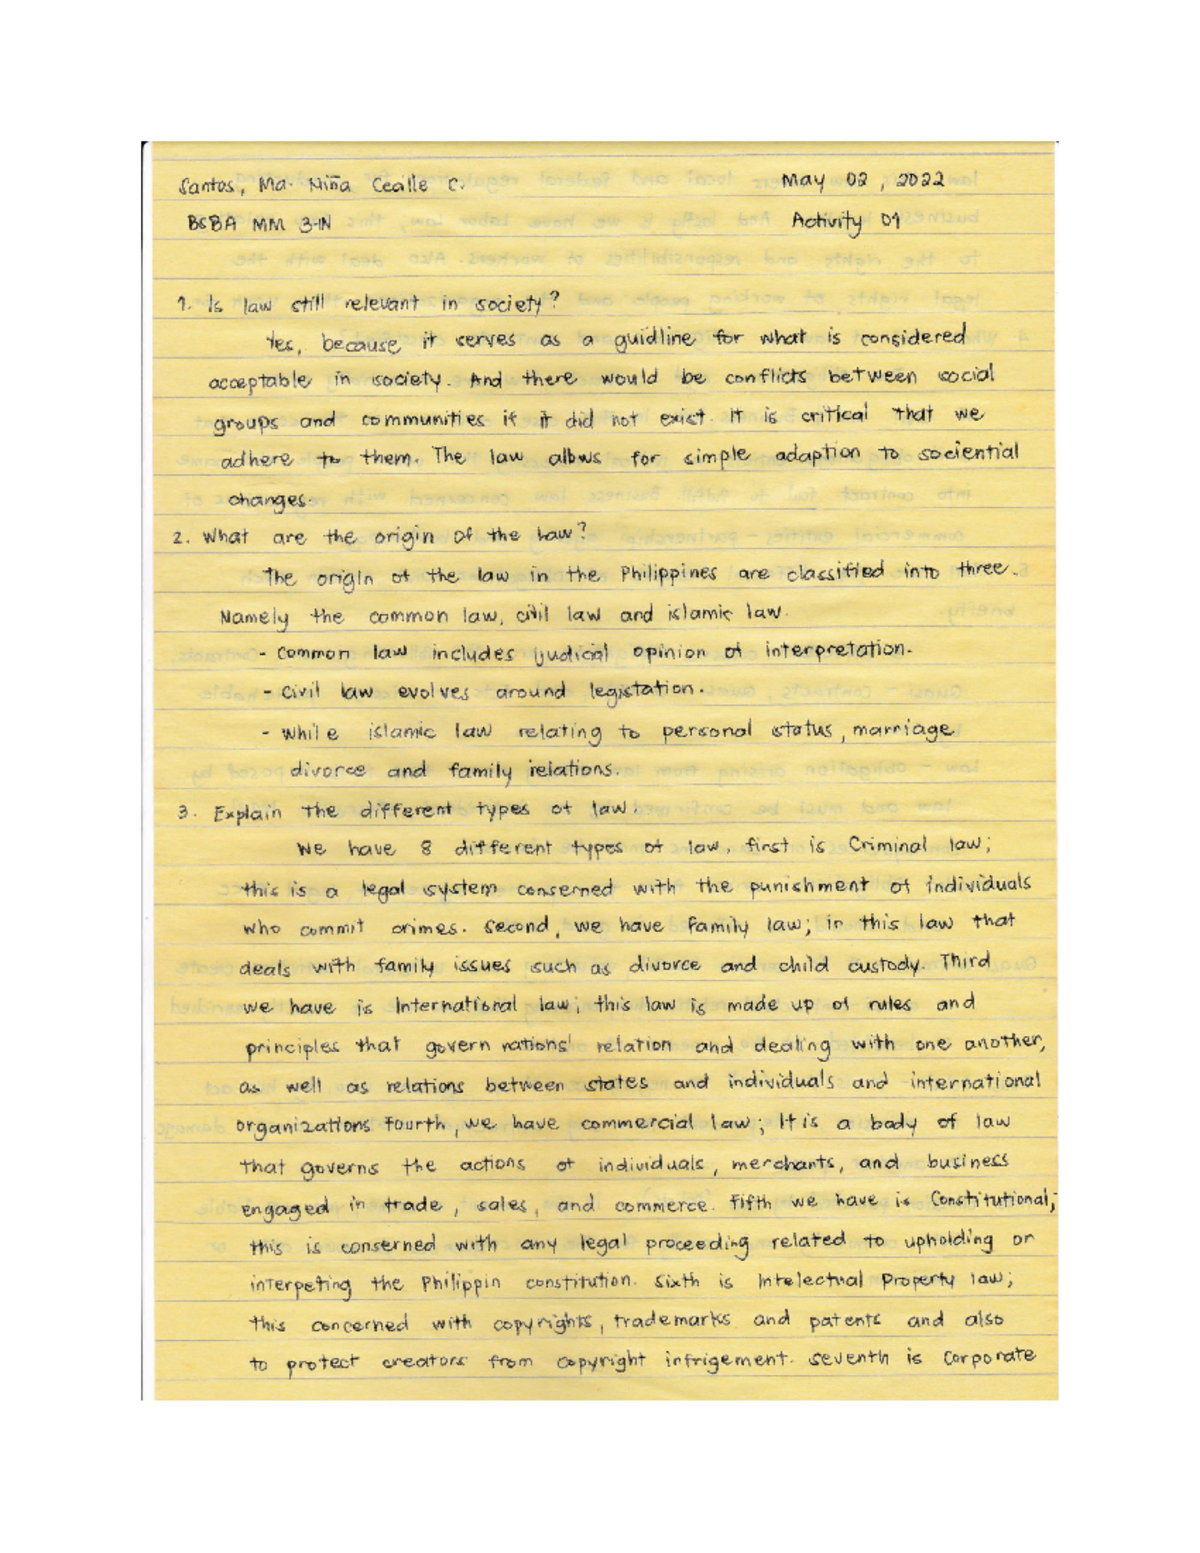 Santos, Ma. Niña Cealle C. May 02, 2022
BSBA MM 3-1N Activity 01
1. Is law still relevant in society?
Yes, because it serves as a guidline for what is considered
acceptable in society. And there would be conflicts between social
groups and communities if it did not exist. It is critical that we
adhere to them. The law allows for simple adaption to sociential
changes.
2. What are the origin of the law?
The origin of the law in the Philippines are classified into three.
Namely the common law, civil law and islamic law.
- Common law includes judicial opinion of interpretation.
- Civil law evolves around legistation.
- While islamic law relating to personal status, marriage
divorce and family relations.
3. Explain the different types of law.
We have 8 different types of law, first is Criminal law;
this is a legal system conserned with the punishment of individuals
who commit crimes. Second, we have Family law; in this law that
deals with family issues such as divorce and child custody. Third
we have is International law; this law is made up of rules and
principles that govern nations' relation and dealing with one another,
as well as relations between states and individuals and international
organizations Fourth, we have commercial law; It is a body of law
that governs the actions of individuals, merchants, and business
engaged in trade, sales, and commerce. Fifth we have is Constitutional;
this is conserned with any legal proceeding related to upholding or
interpeting the Philippin constitution. Sixth is Intelectual Property law;
this concerned with copyrights, trademarks and patents and also
to protect creators from copyright infrigement. Seventh is Corporate